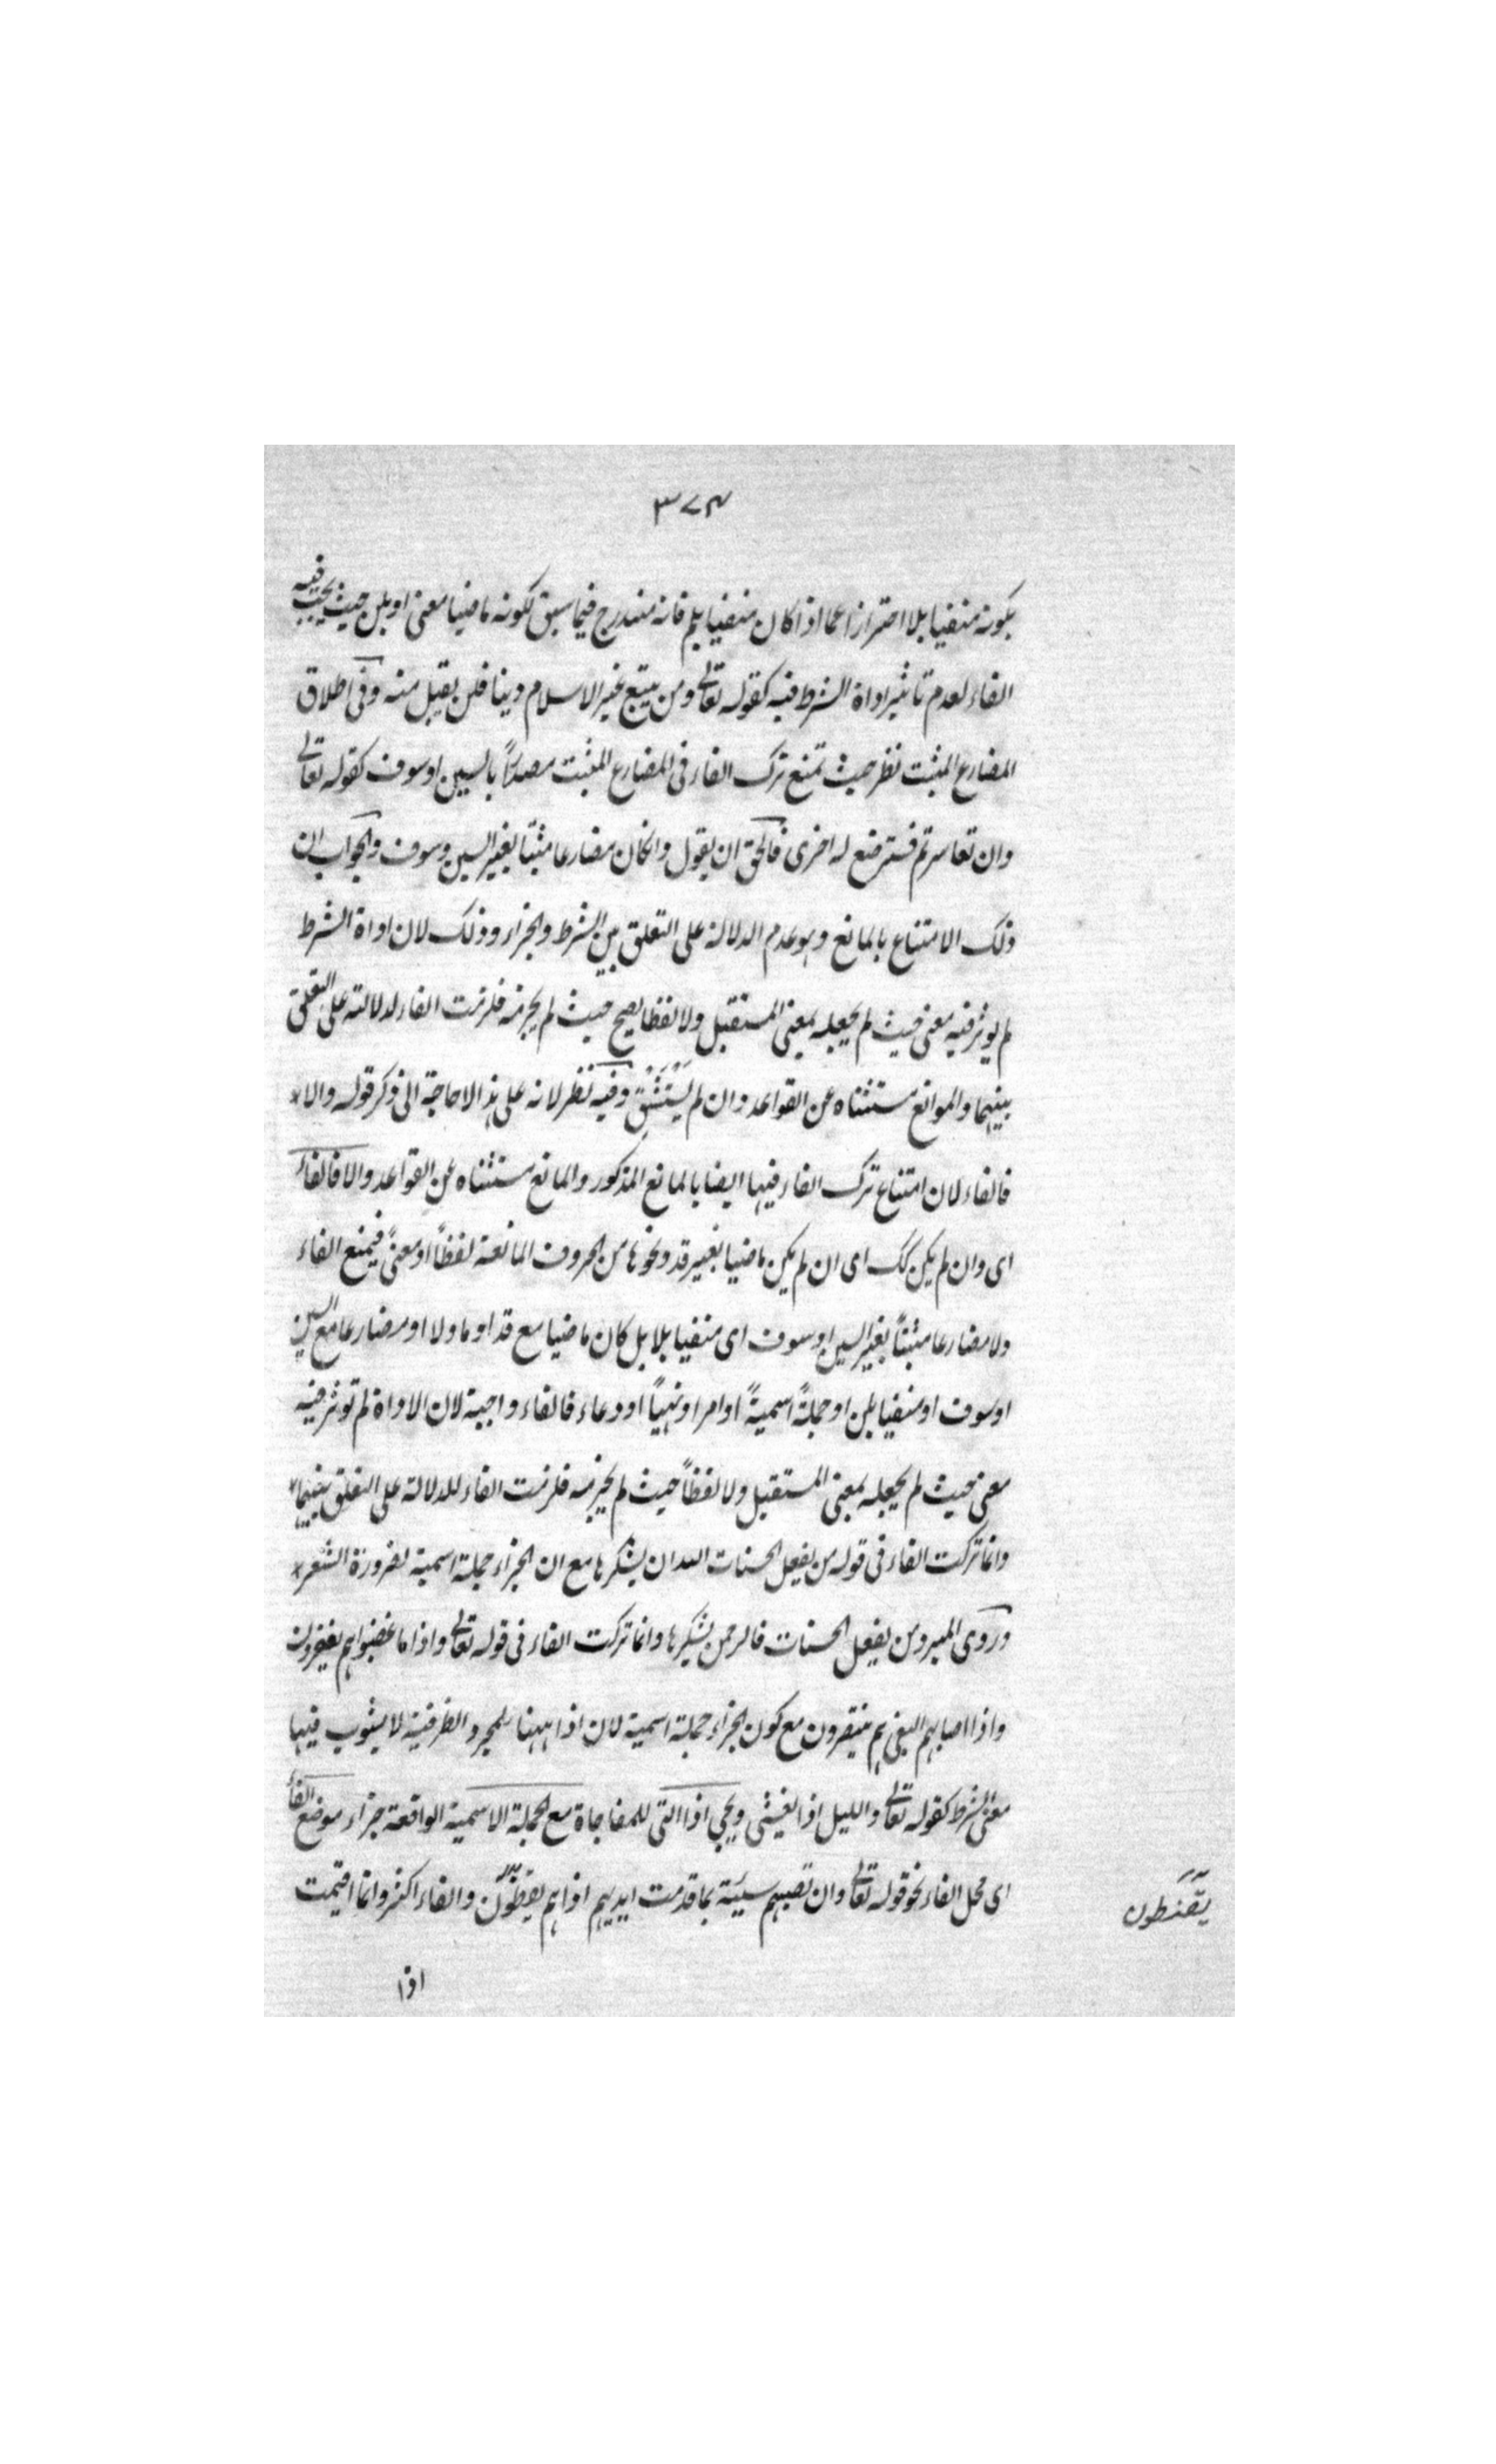 ٣٧٤
بكونه منفيا بلا احترازا عما اذا كان منفيا بلم فانه مندرج فيما سبق لكونه ماضيا معنى او بلن حيث يجب فيه
الفاء لعدم تاثير اداة الشرط فيه كقوله تعالى ومن يبتغ غير الاسلام دينا فلن يقبل منه وفى اطلاق
المضارع المثبت نظر حيث تمنع ترك الفاء فى المضارع المثبت مصدرًا بالسين او سوف كقوله تعالى
وان تعاسرتم فسترضع له اخرى فالحق ان يقول وانكان مضارعا مثبتا بغير السين وسوف والجواب ان
ذلك الامتناع بالمانع وهو عدم الدلالة على التعلق بين الشرط والجزاء وذلك لان اداة الشرط
لم يوثر فيه معنى حيث لم يجعله بمعنى المستقبل ولا لفظا يصح حيث لم يجزمه فلزمت الفاء لدلالته على التعلق
بينهما والموانع مستثناه عن القواعد وان لم يستثن وفيه نظر لانه على هذا لا حاجة الى ذكر قوله والا*
فالفاء لان امتناع ترك الفاء فيها ايضا بالمانع المذكور والمانع مستثناه عن القواعد والا فالفاء
اى وان لم يكن كك اى ان لم يكن ماضيا بغير قد ونحوها من الحروف المانعة لفظاً او معنىً فيمنع الفاء
ولا مضارعا مثبتاً بغير السين او سوف اى منفيا بلا بل كان ماضيا مع قد او ما ولا او مضارعا مع السين
او سوف او منفيا بلن او جملةً اسميةً او امرا او نهياً او دعاء فالفاء واجبة لان الاداة لم توثر فيه
معنى حيث لم يجعله بمعنى المستقبل ولا لفظاً حيث لم يجزمه فلزمت الفاء للدلالة على التعلق بينهما*
وانما تركت الفاء فى قوله من يفعل الحسنات الله ان يشكرها مع ان الجزاء جملة اسمية لضرورة الشعر*
وروى المبرد من يفعل الحسنات فالرحمن يشكرها وانما تركت الفاء فى قوله تعالى واذا ما غضبوا هم يغفرون
واذا اصابهم البغى هم ينتصرون مع كون الجزاء جملة اسمية لان اذا ههنا لمجرد الظرفية لا يشوب فيها
معنى الشرط كقوله تعالى والليل اذا يغشى ويجى اذا التى للمفاجاة مع الجملة الاسمية الواقعة جزاء موضع الفاء
اى محل الفاء نحو قوله تعالى وان تصبهم سيئة بما قدمت ايديهم اذا هم يقنطون والفاء اكثر وانما اقيمت
يقنطون
اذا